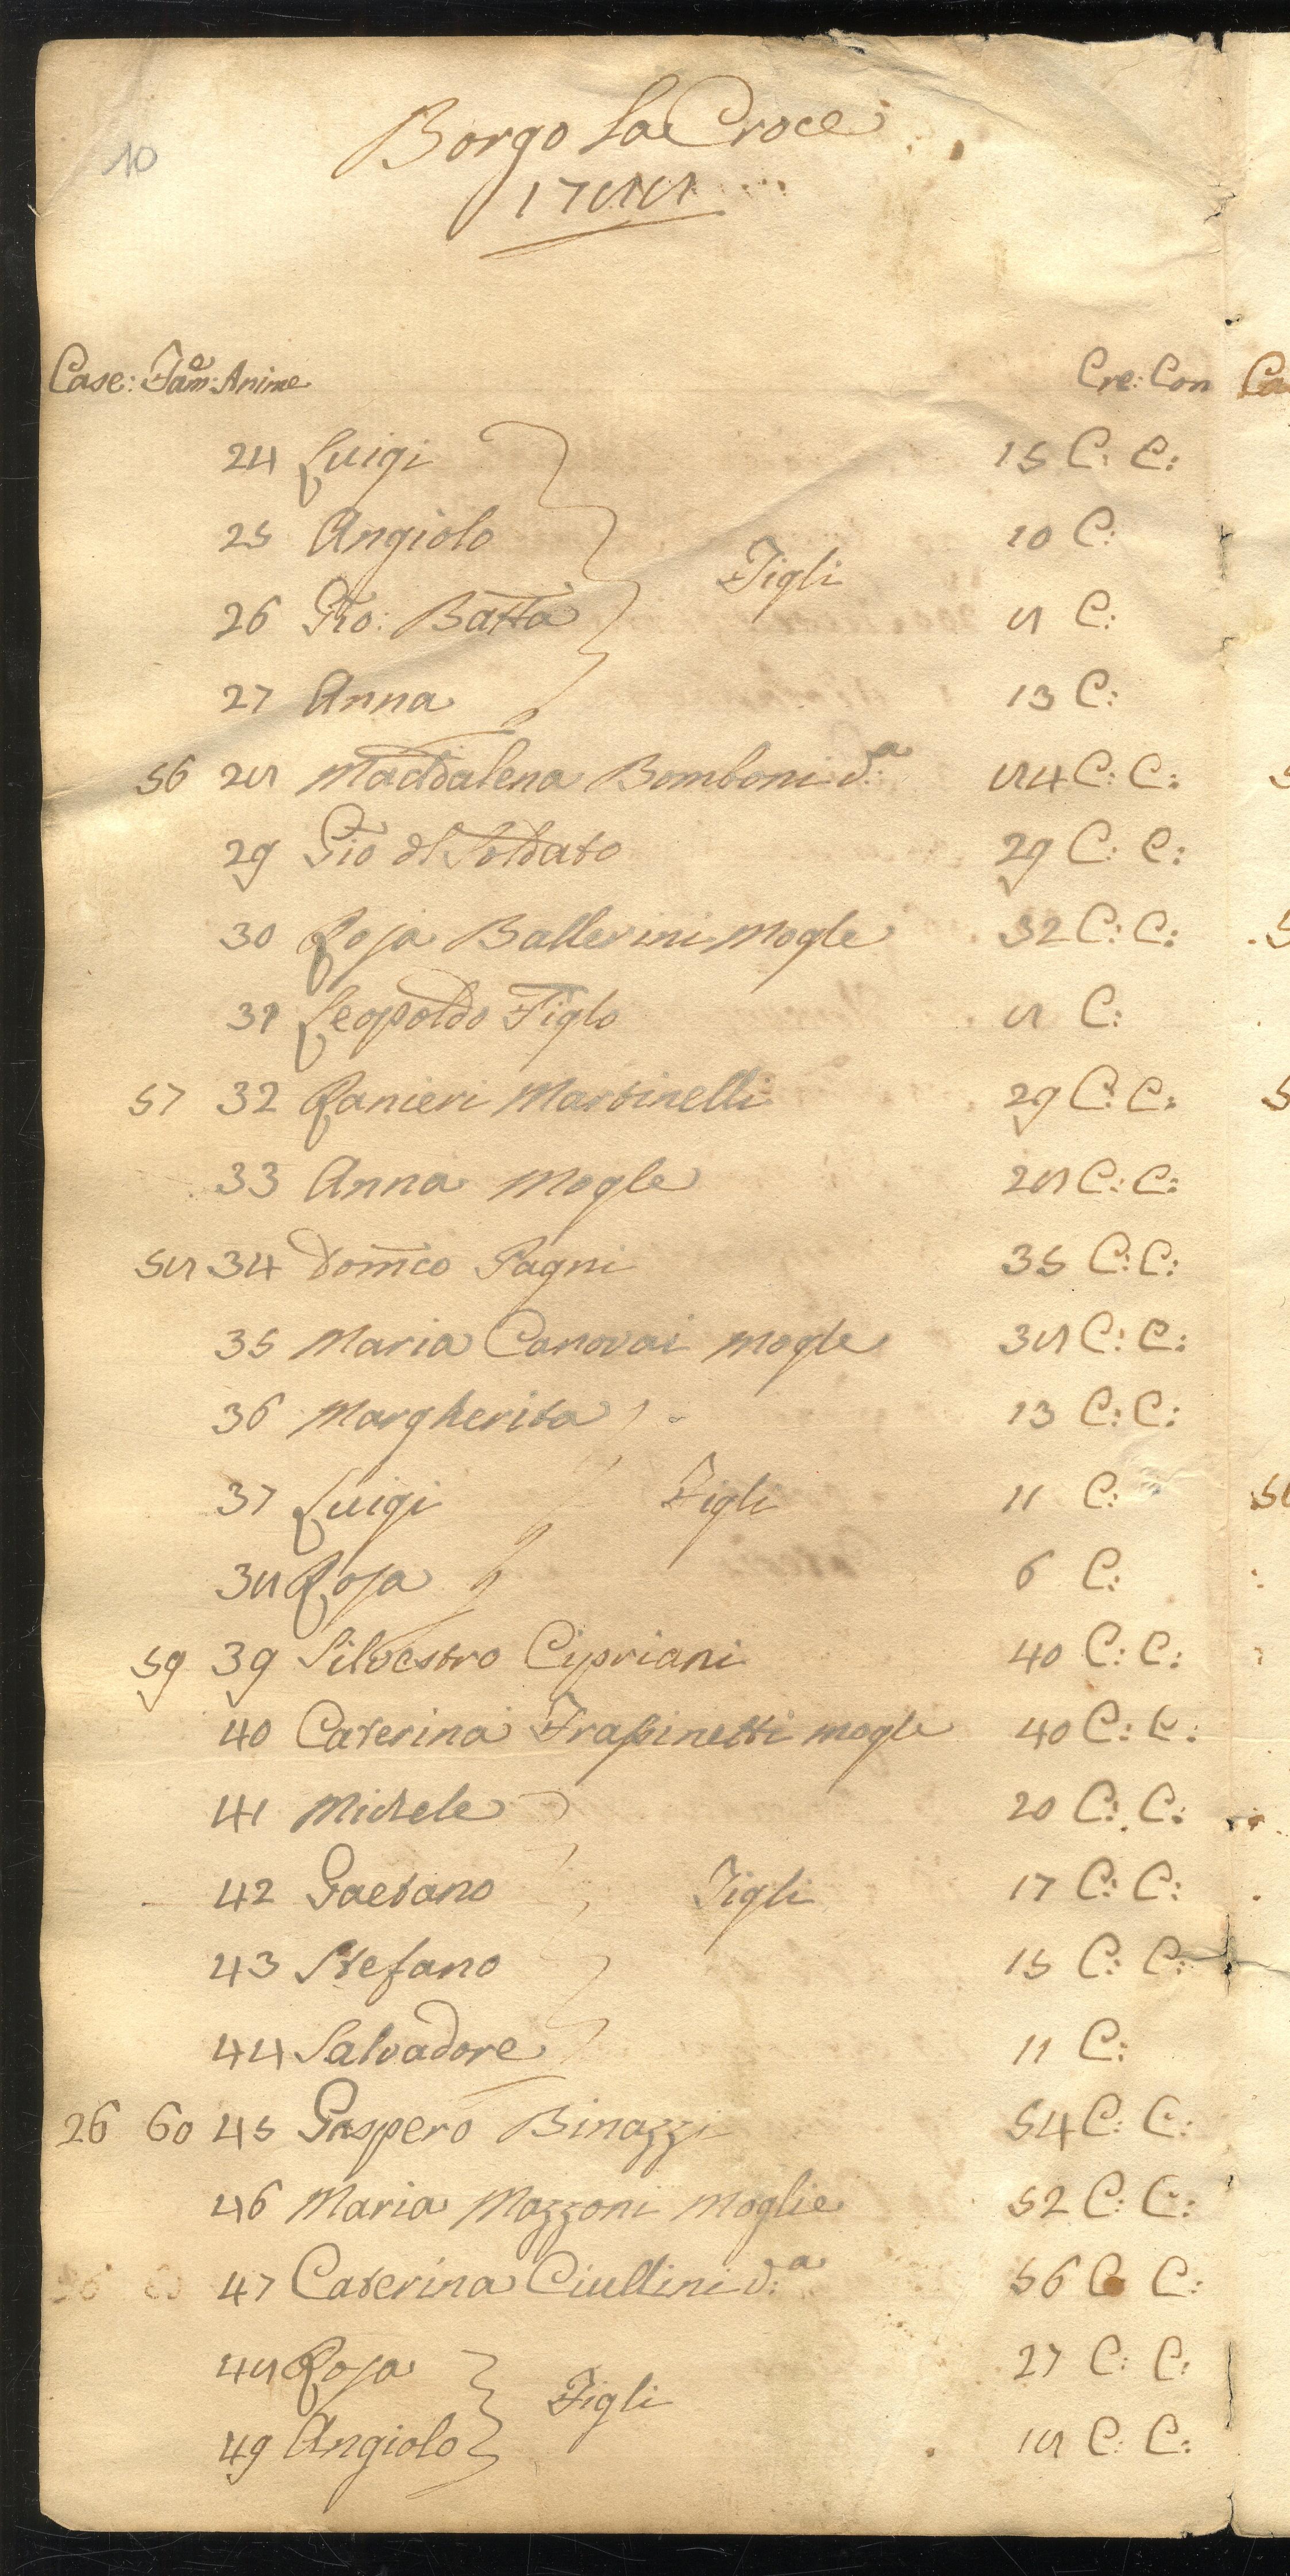 10
Borgo La Croce
1788
Case: Fam:e Anime Cre: Con
24 Luigi 15 C: C:
25 Angiolo 10 C:
Figli
26 Gio: Batta 8 C:
27 Anna 13 C:
56 28 Maddalena Bomboni v:a 84 C: C:
29 Gio dl Soldato 29 C: C:
30 Rosa Ballerini Mogle 32 C: C:
31 Leopoldo Figlo 8 C:
57 32 Ranieri Martinelli 29 C: C:
33 Anna Mogle 28 C: C:
58 34 Domco Pagni 35 C: C:
35 Maria Canovai Mogle 38 C: C:
36 Margherita 13 C: C:
37 Luigi Figli 11 C:
38 Rosa 6 C:
59 39 Silvestro Cipriani 40 C: C:
40 Caterina Frassinetti mogle 40 C: C:
41 Michele 20 C: C:
42 Gaetano Figli 17 C: C:
43 Stefano 15 C: C:
44 Salvadore 11 C:
26 60 45 Gaspero Binazzi 54 C: C:
46 Maria Mazzoni Moglie 52 C: C:
47 Caterina Ciullini v:a 56 C C:
48 Rosa 27 C: C:
Figli
49 Angiolo 18 C: C: